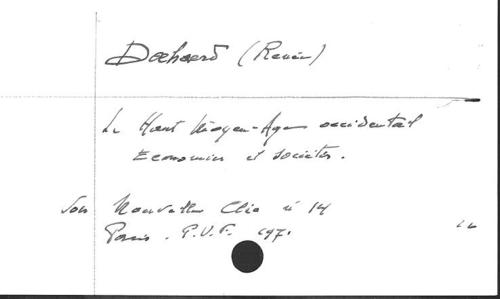 Doehaerd (Renée)
Le Haut Moyen-Age occidental
Economies et sociétés.
Nouvelle Clio n° 14
Paris. P.U.F. 1971